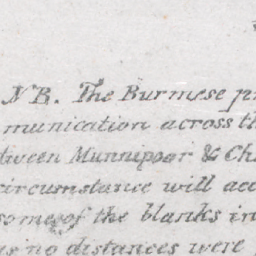 NB. The Burmese
munication across
Munnipoor & 
circumstance will
some of the blanks in
no distances were